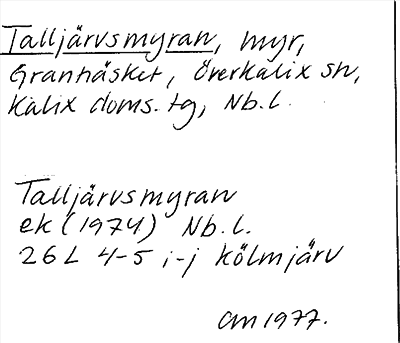 Talljärvsmyran, myr,
Granhäsket, Överkalix sn,
Kalix doms. tg, Nb. l.
Talljärvsmyran
ek (1974) Nb. l.
26 L 4-5 i-j Kölmjärv
CM 1977.